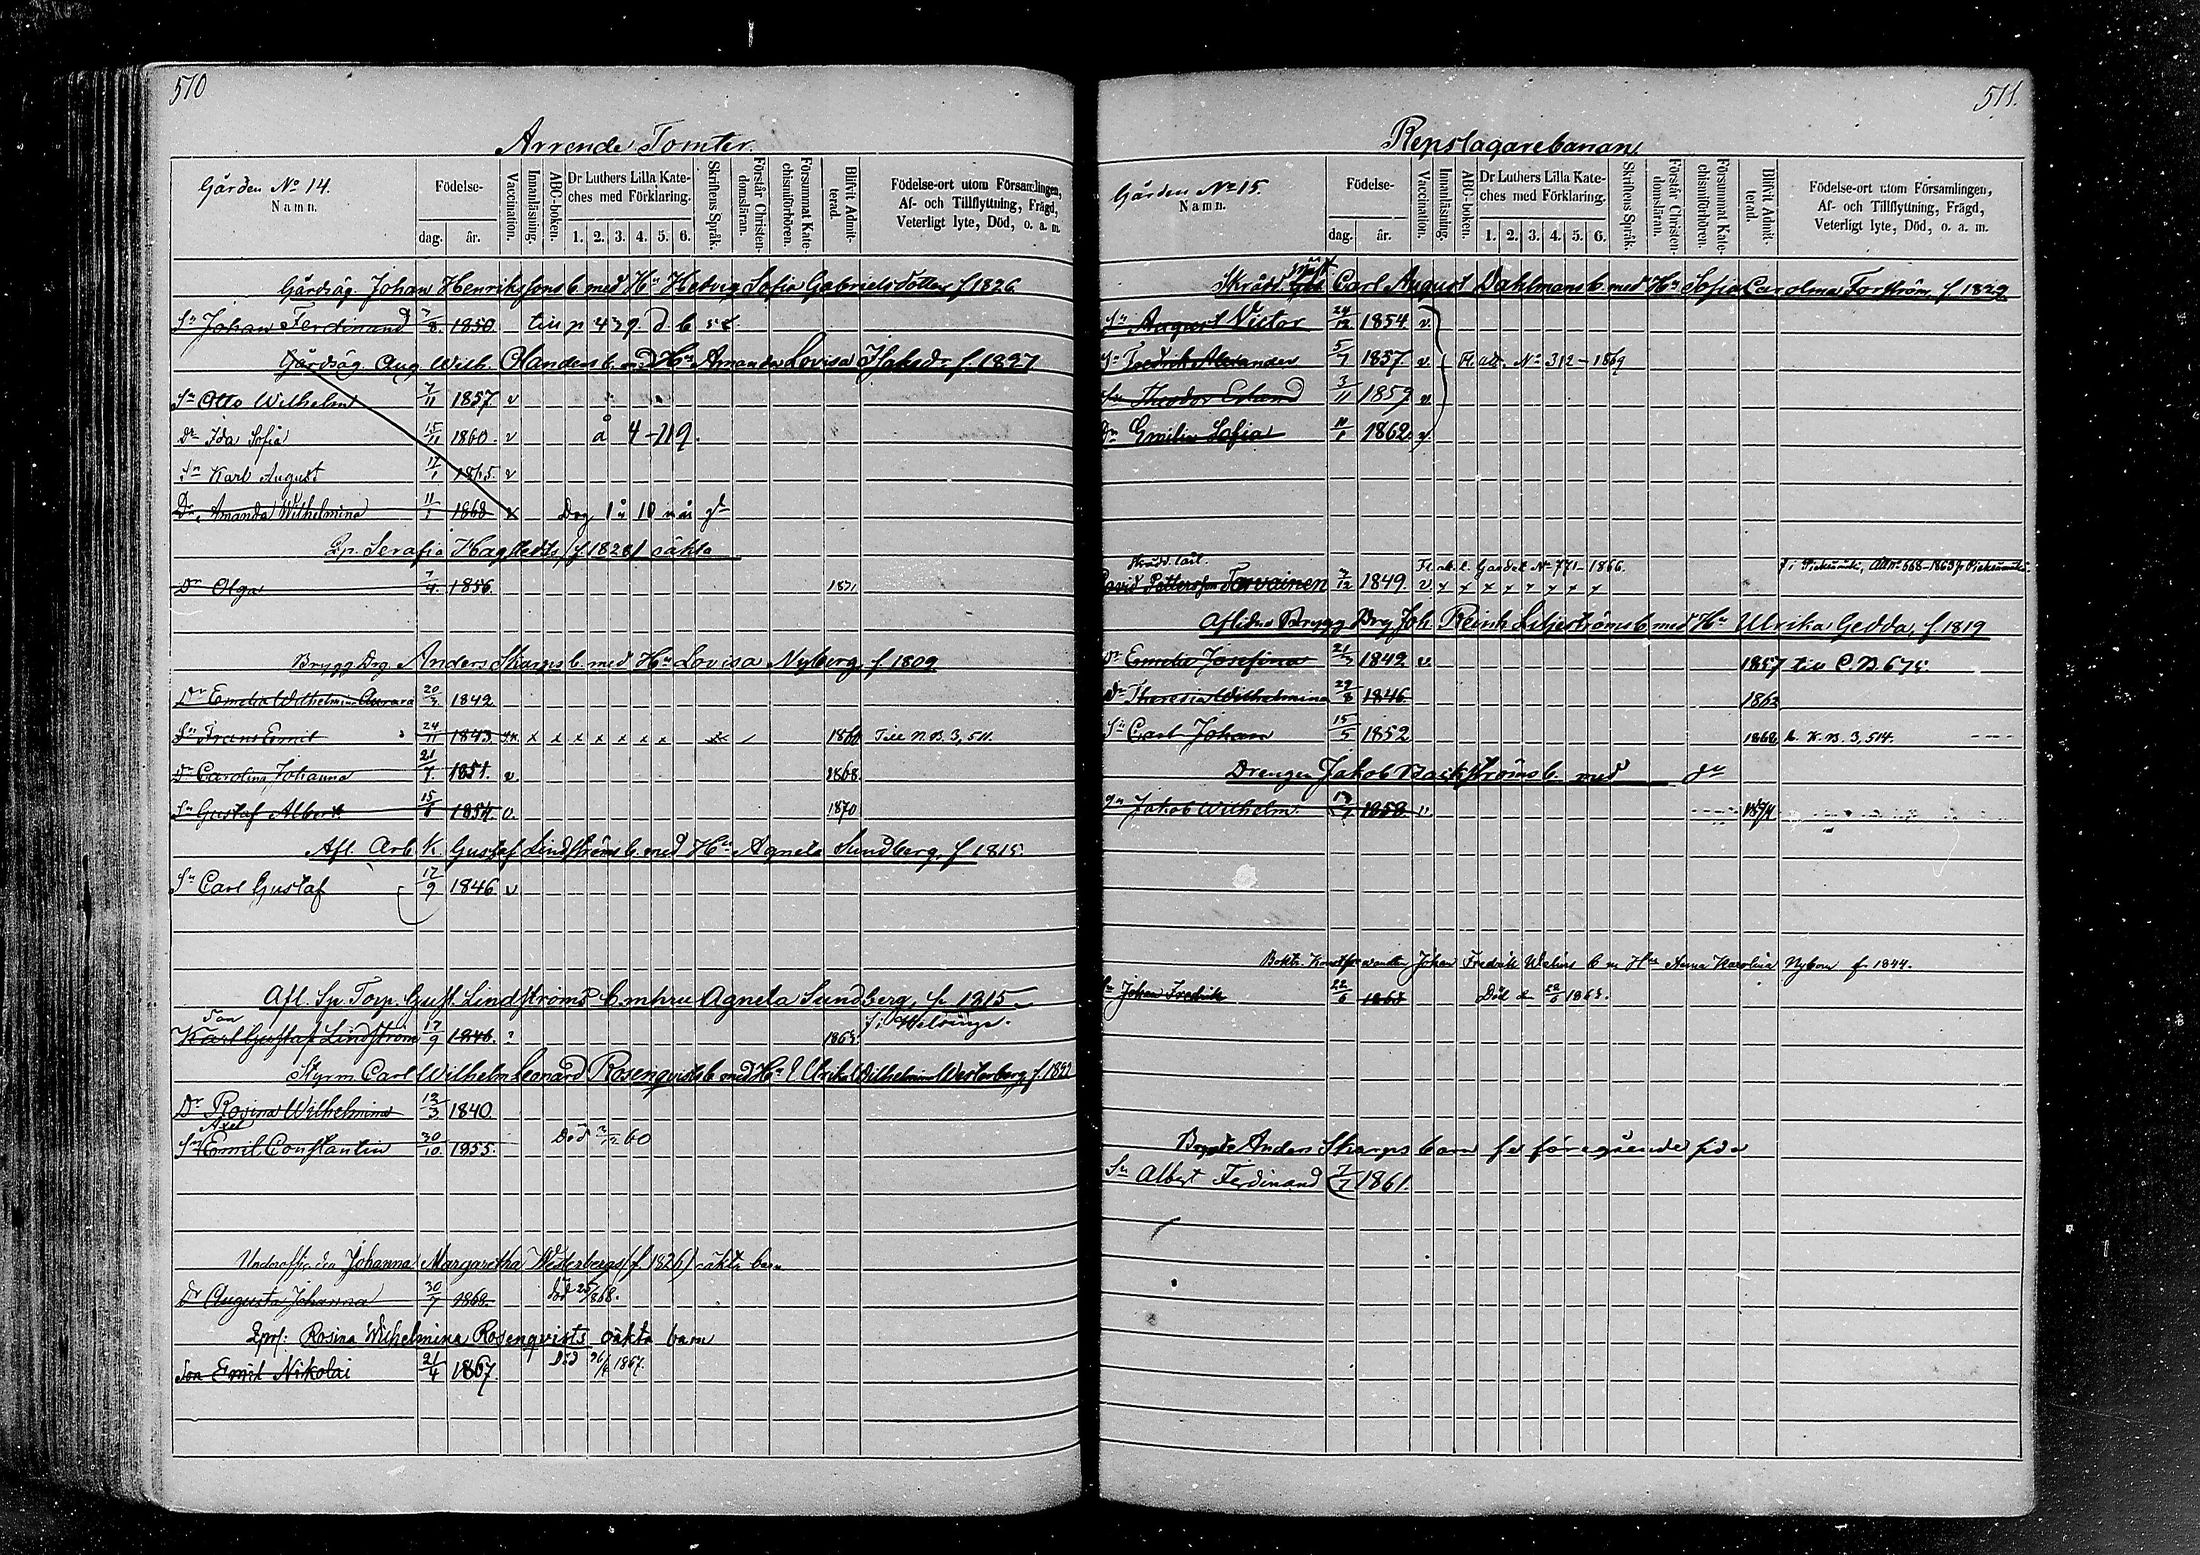 510
Arrende Tomter
Gården No 14.
Namn.
Födelse-
dag.
år.
Vaccination.
Innanläsning.
ABC-boken.
Dr Luthers Lilla Kate-
ches med Förklaring.
1. 2. 3. 4. 5. 6.
Skriftens Språk.
Förstår Christen-
domsläran.
Försummat Kate-
chismiförhören.
Blifvit Admit-
terad.
Födelse-ort utom Församlingen,
Af- och Tillflyttning, Frägd,
Veterligt lyte, Död, o. a. m.
Gårdsäg. Johan Henrikssons b. med Hu Hedvig Sofia Gabrielsdotter f. 1826
Sn Johan Ferdinand 7/8 1850
Gårdsäg. Aug. Wilh. Olanders b. med Hu Amanda Lovisa Isaksdr f. 1837
Sn Otto Wilhelm 7/11 1857. v
Dr Ida Sofia 15/11 1860. v
Sn Karl August 17/1 1865. v
Dr Amanda Wilhelmina 11/1 1868 Dog 1 å 10 mån
Serafia Hagstedts (f. 1828) oäkta
Dr Olga 7/4 1856. 1871
Brygg Drg Anders Skarps b. med Hu Lovisa Nyberg f. 1809
Dr Emelia Wilhelmina Aurora 20/3 1842
Sn Frans Emil 24/11 1843. x x x x x x x 1860 Till N.B. 3, 511.
Dr Carolina Johanna 21/7 1851. v. 1868.
Sn Gustaf Albert 15/8 1854. v. 1870
Afl. Arb. K. Gustaf Lindströms b. med Hu Agneta Sundberg, f. 1815.
Sn Carl Gustaf 17/9 1846 v
Afl. Sp. Torp. Gust. Lindströms b. m hru Agneta Sundberg, f. 1815
Son
Karl Gustaf Lindström 17/9 1846. 1863.
Styrm. Carl Wilhelm Leonard Rosenqvists b med Hu Ulrika Wilhelmina Westerberg f. 1822
Dr Rosina Wilhelmina 12/3 1840.
Axel
Sn Emil Constantin 30/10 1855. Död 60
Johanna Margaretha Westerbergs (f. 1826) oäkta barn
Dr Augusta Johanna 30/7 1868. död 868.
Rosina Wilhelmina Rosenqvists oäkta barn
Son Emil Nikolai 21/4 1867 Död 1867.
511.
Repslagarebanan
Gården No 15
Namn.
Födelse-
dag.
år.
Vaccination.
Innanläsning.
ABC-boken.
Dr Luthers Lilla Kate-
ches med Förklaring.
1. 2. 3. 4. 5. 6.
Skriftens Språk.
Förstår Christen-
domsläran.
Försummat Kate-
chismiförhören.
Blifvit Admit-
terad.
Födelse-ort utom Församlingen,
Af- och Tillflyttning, Frägd,
Veterligt lyte, Död, o. a. m.
Skrädd. Carl August Dahlmans b. med Hu Sofia Carolina Forström, f. 1829
Sn August Victor 24/12 1854. v
Sn Fredrik Alexander 5/7 1857. v. Fl. att. No 312-1869
Sn Theodor Erland 3/11 1859 v
Dr Emilia Sofia 11/1 1862. v
No 771-1866.
David Pettersson Torvainen 7/12 1849. v.
Aflidne Brygg Drg Joh. Reinh. Liljeströms b med Hu Ulrika Gedda, f. 1819
Dr Emelie Josefina 21/3 1842 v. 1857 till C.B. 675
Dr Theresia Wilhelmina 29/8 1846. 1863
Sn Carl Johan 15/5 1852 1868 3, 514.
Drengen Jakob Backströms b. med
Sn Jakob Wilhelm. 1858 v. 1874
Johan Fredrik b. m. Hu Anna Karolina Nybom f. 1844.
Sn Johan Fredrik 22/6 1865 Död d. 28/6 1865.
Anders Skarps barn fr föregående sida
Sn Albert Ferdinand 7/7 1861.